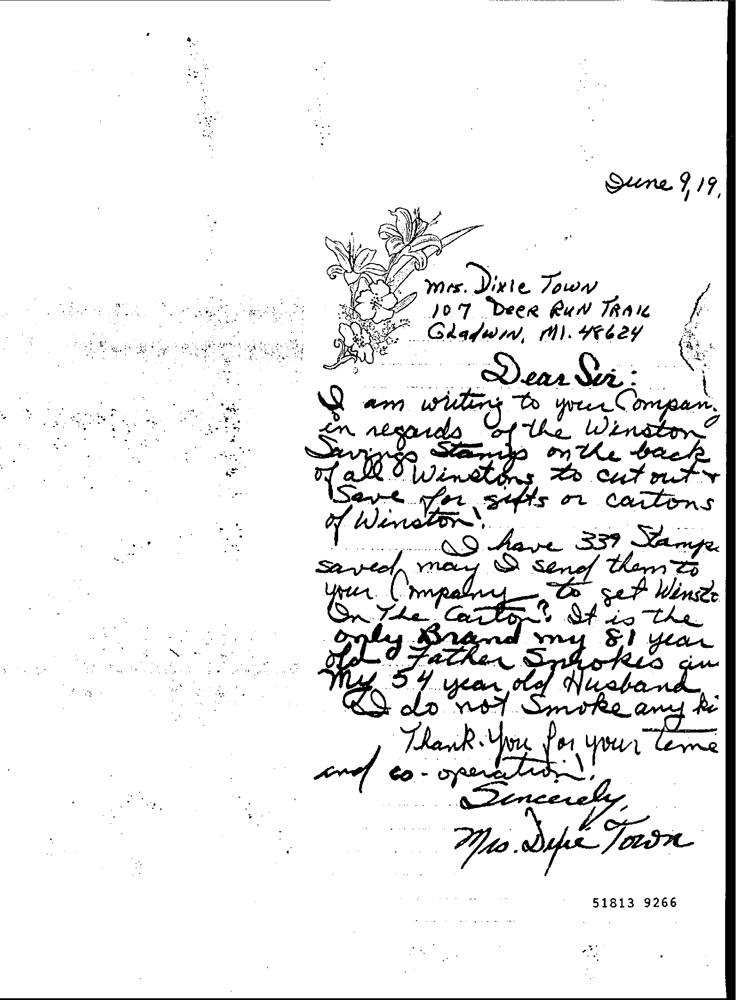 June 9, 19
Mrs. Dixie Town
107 Deer Run Trail
Gladwin, MI. 48624
Dear Sir:
I am writing to your Compan
in regards of the Winston
Savings Stamps on the back
of all Winstons to cut out &
Save for gifts or cartons
of Winston!
I have 339 Stamps
saved may I send them to
your Company to get Winsto
In The Carton? It is the
only Brand my 81 year
old Father Smokes an
My 54 year old Husband
I do not Smoke any ki
Thank-You for your time
and co-operation!
Sincerely,
Mrs. Dixie Town
51813 9266